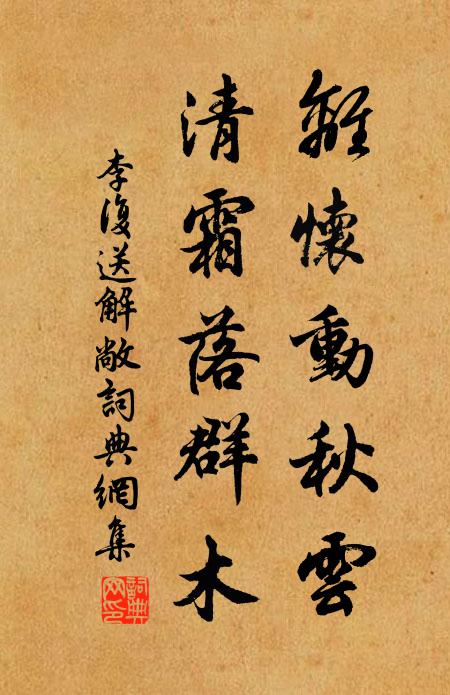 離懷動秋雲
清霜落群木
李復送解敞詞典網集
詞典網印